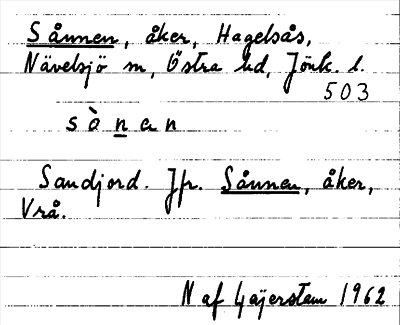 Sånnen, åker, Hagelsås,
Nävelsjö sn, Östra hd, Jönk. l.
503
sò̀nan
Sandjord. Jfr. Sånnen, åker,
Vrå.
N af Gäjerstam 1962